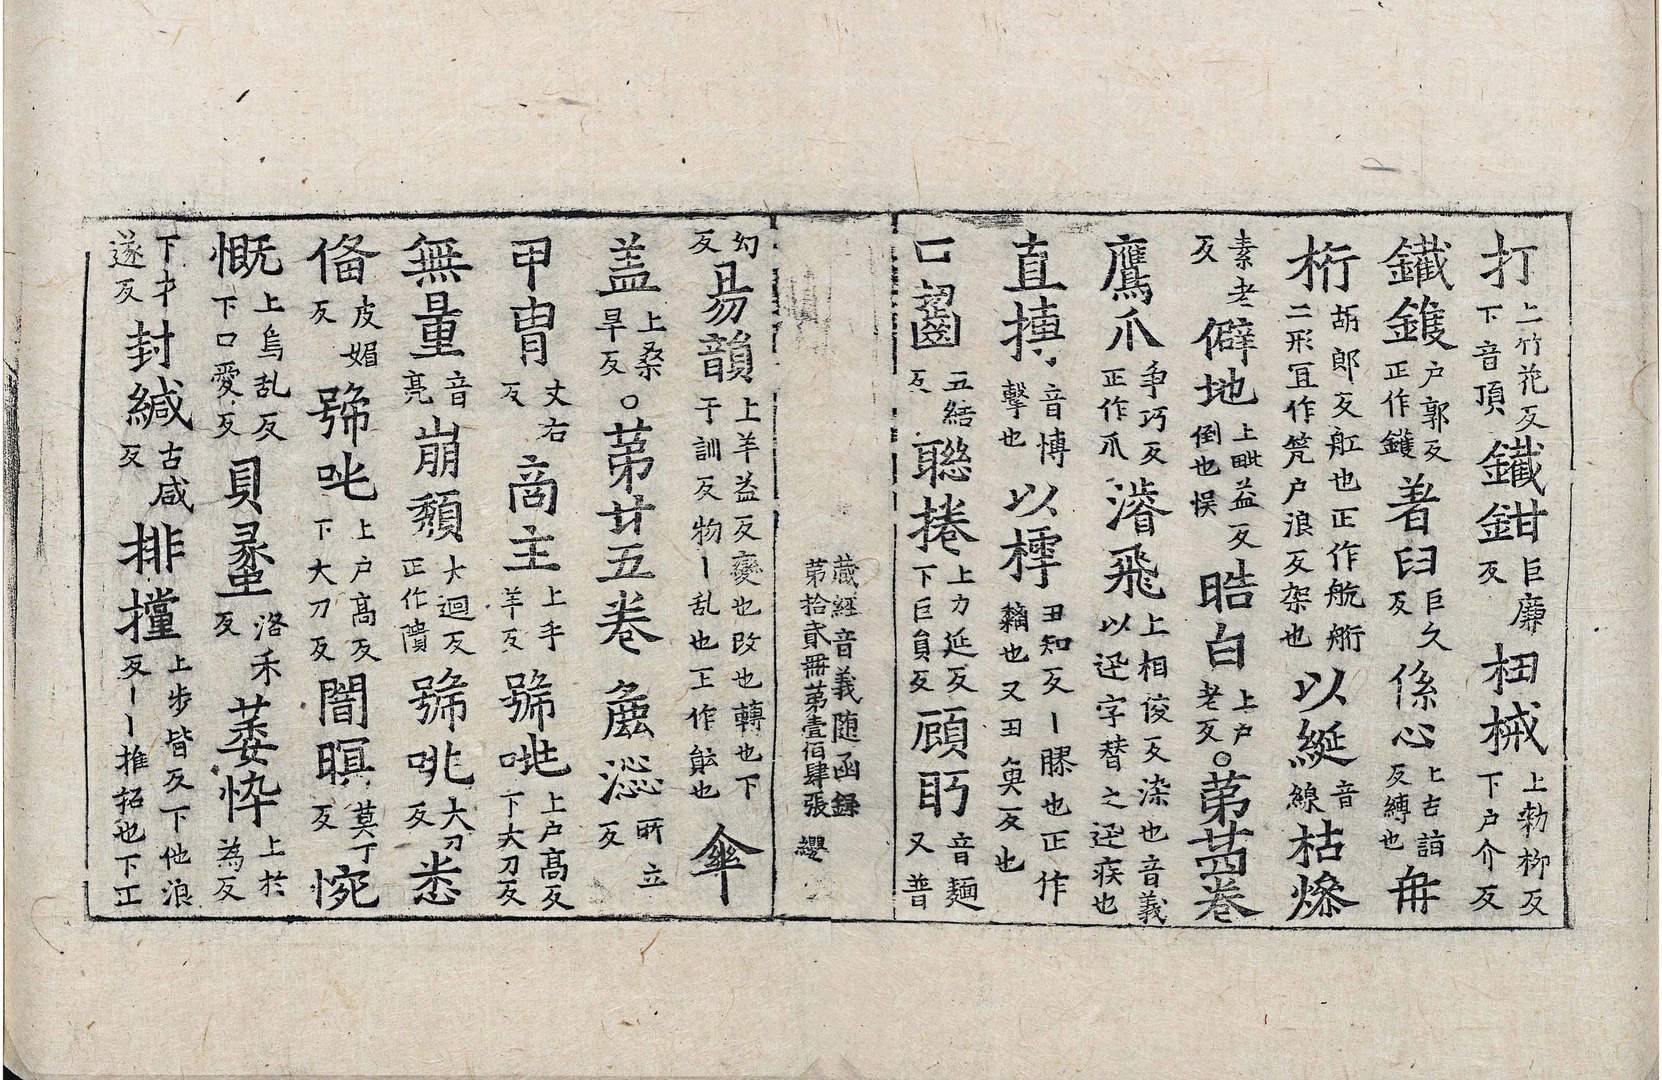 打上竹花反下音頂鐵鉗巨廉反杻械上勑柳反下户介反
鐵鑊户郭反正作鑊著臼巨久反係心上古詣反縛也毋
桁胡郎反舡也正作航䑪二形冝作笐户浪反架也以綖音線枯㷮
素老反僻地上毗益反倒也悮晧白上户老反。苐廿四卷
鷹爪争巧反正作爪濬飛上相俊反深也音義以迅字替之迅疾也
直搏音博擊也以樗丑知反丨膠也正作黐也又丑魚反也
口齧五結反聮捲上方延反下巨負反顧眄音麺又普
藏經音義随函録
第拾貳冊第壹佰肆張 纓
幻反易韻上羊益反變也改也轉也下于訓反物丨乱也正作䡣也傘
盖上桑旱反。苐廿五卷麁澁所立反
甲冑丈右反商主上手羊反號咷上户高反下大刀反
無量音亮崩頹大迴反正作隤號咷大刀反悉
俻皮媚反號咷上户高反下大刀反闇暝莫丁反惋
慨上烏乱反下口愛反貝蠡洛禾反萎悴上於為反
下才遂反封緘古咸反排攩上步皆反下他浪反丨丨推拓也下正